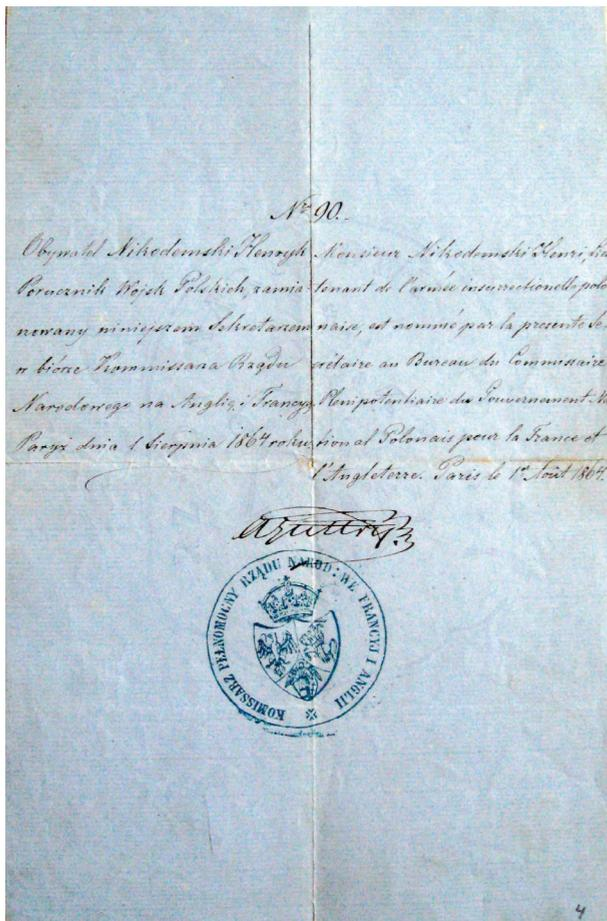 Nro 90.
Obywatel Nikodemski Henryk
Porucznik Wojsk Polskich, zamia-
nowany niniejszem Sekretarzem
w biórze Kommissarza Rządu
Narodowego na Anglię i Francyę
Paryż dnia 1 Sierpnia 1864 roku
Monsieur Nikodemski Henri, lieu
tenant de l'armée insurrectionelle polo
naise, est nommé par la presente Se
crétaire au Bureau du Commissaire
Plenipotentiaire du Gouvernement Na
tional Polonais pour la France et
l'Angleterre. Paris le 1r Août 1864.
KOMISSARZ PEŁNOMOCNY RZĄDU NAROD: WE FRANCYJI I ANGLII
4